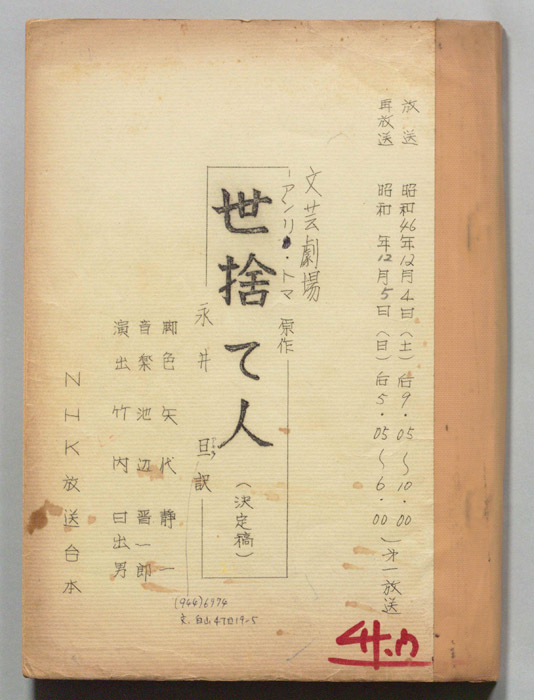 放送 昭和46年12月4日(土)后9.05～10.00
再放送 昭和 年12月5日(日)后5.05～6.00 第一放送
文芸劇場
アンリ・トマ 原作
世捨て人
(決定稿)
永井 旦 訳
脚色 矢代 静一
音楽 池辺 晋一郎
演出 竹内 日出男
NHK放送台本
(944)6974
文.白山4丁目19-5